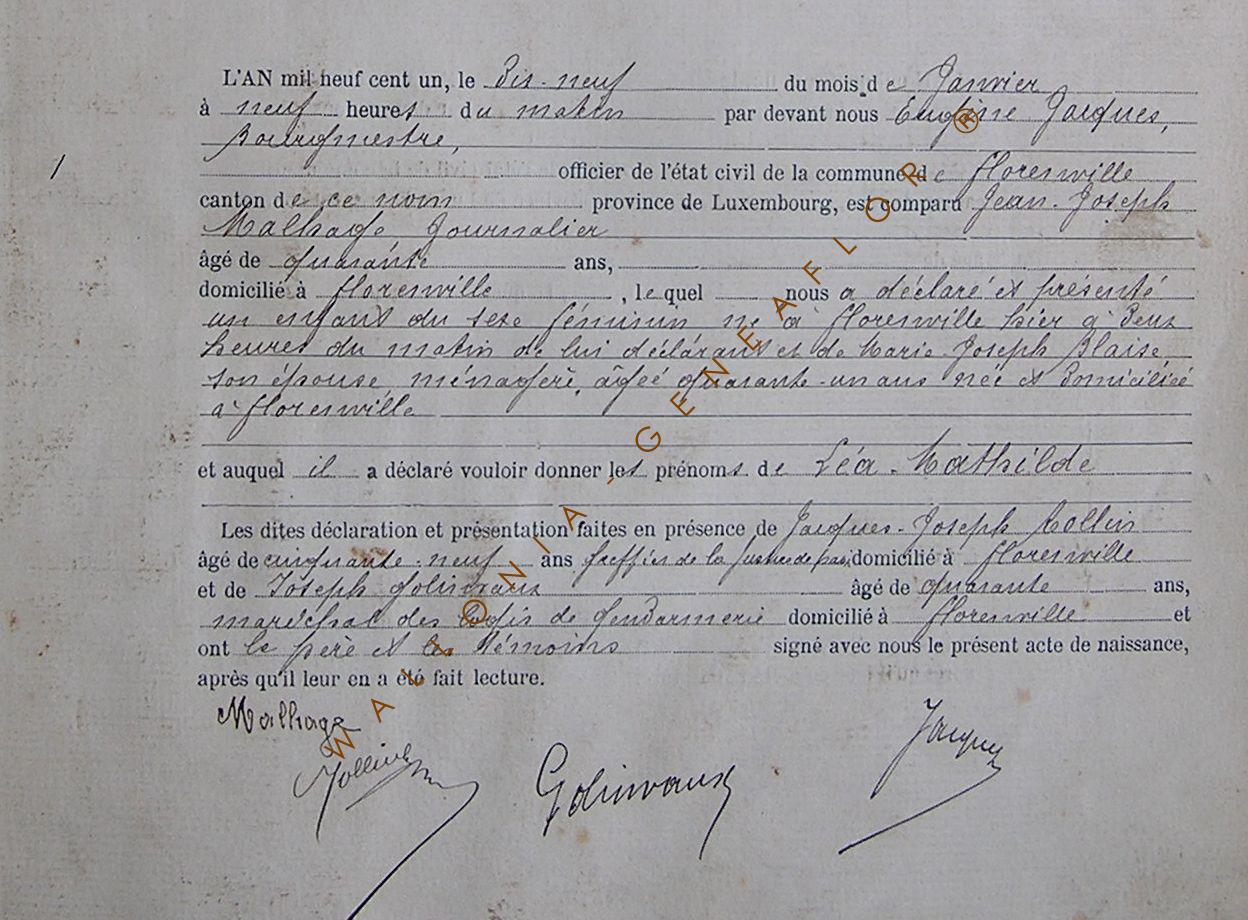 L'AN mil neuf cent un, le Dix-neuf du mois de Janvier
à neuf heures du matin par devant nous Eugène Jacques,
Bourgmestre,
1
officier de l'état civil de la commune de Florenville
canton de ce nom province de Luxembourg, est comparu Jean-Joseph
Malhage Journalier
âgé de quarante ans,
domicilié à Florenville , lequel nous a déclaré et présenté
un enfant du sexe féminin né à Florenville hier à Deux
heures du matin de lui déclarant et de Marie-Joseph Blaise,
son épouse, ménagère, âgée quarante-un ans née et Domiciliée
à Florenville
et auquel il a déclaré vouloir donner les prénoms de Léa-Mathilde
Les dites déclaration et présentation faites en présence de Jacques-Joseph Collin
âgé de cinquante-neuf ans Greffier de la Justice de paix domicilié à Florenville
et de Joseph Golinvaux âgé de quarante ans,
maréchal des logis de Gendarmerie domicilié à Florenville et
ont le père et les témoins signé avec nous le présent acte de naissance,
après qu'il leur en a été fait lecture.
Malhage
Jacques
Collin
Golinvaux
WALLONIA-GENEAFLOR®